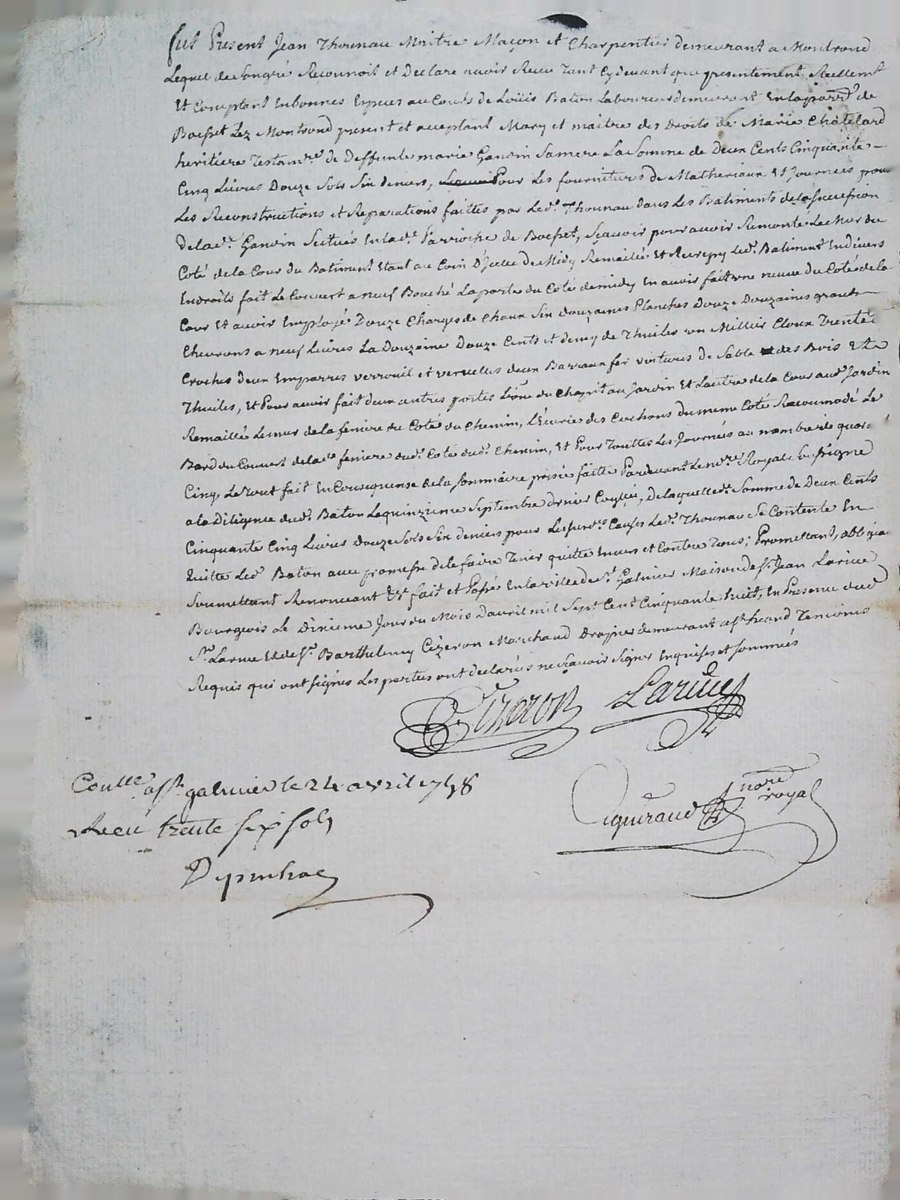 fut Present Jean Thounau Maitre Maçon et Charpentier demeurant a Montrond
Lequel de son gré Reconnoit et Declare avoir Receu Tant Cy devant que presentement Reellemt
Et Comptant En bonnes Especes au Cours de Loüis Baton Laboureur demeurant En la parr.e de
Boesset Lez Montrond present et acceptant Mary et maitre des Droits de Marie Chatelard
heritiere Testam.re de Deffunte marie Gandin Sa mere La Somme de Deux Cents Cinquante
Cinq Livres Douze Sols Six deniers, Pour Les fournitures de Matheriaux Et Journées pour
Les Reconstructions et Reparations faittes par Led.t Thounau dans Les Batiments de la Succession
de lad.e Gandin Scitués En lad.e Parroche de Boesset, Sçavoir pour avoir Remonté Le Mur du
Coté de la Cour du Batiment Etant au Coin de Midy Remaillé Et Led.t Batiment En divers
Endroits fait Le Couvert a neuf Bouché La porte du Coté de midy En avoir fait une neuve du Coté de la
Cour Et avoir Employé Douze Charges de Chaux Six douzaines Planches Douze Douzaines grands
Chevrons a neuf Livres La Douzaine Douze Cents et demy de Thuiles un Millier Cloux Trente
Croches deux Emparres verrouil et vervelus deux Barraux fer voitures de Sable des Bois Et
Thuiles, Et Pour avoir fait deux autres portes L'une du Chapit au Jardin Et Lautre de la Cour aud.t Jardin
Remaillé Le mur de la feniere du Coté du Chemin, L'Ecurie des Cochons du meme Coté Racoumodé Le
Bard du Couvert de lad.e feniere dud.t Coté dud.t Chemin, Et Pour Touttes Les Journées au nombre de quara
Cinq, Le Tout fait En Consequense de la Sommaire prisée faitte Pardevant Le no.re Royal Soussigné
a la Diligence dud.t Baton Le quinzieme Septembre dernier, De laquelle d.e Somme de Deux Cents
Cinquante Cinq Livres Douze Sols Six deniers pour Les Causes Led.t Thounau Se Contente En
Quitte Led.t Baton avec promesse de le faire Tenir quitte Envers et Contre Tous; Promettant, obligea
Soumettant Renonceant &.t fait et Passé En la ville de S.t Galmier Maison de S.r Jean Larive
Bourgeois Le Dixieme Jour du Mois Davril mil Sept Cent Cinquante huit, En Presence dud
S.r Larive Et de S.r Barthelemy Cizeron Marchand demeurant Temoins
Requis qui ont Signes Les parties ont declarées ne Sçavoir Signer Enquises et Sommés
Cizeron Larive
Coutlle a S.t galmier le 24 avril 1758
Receu trente six sols
Aiguiraud nore royal